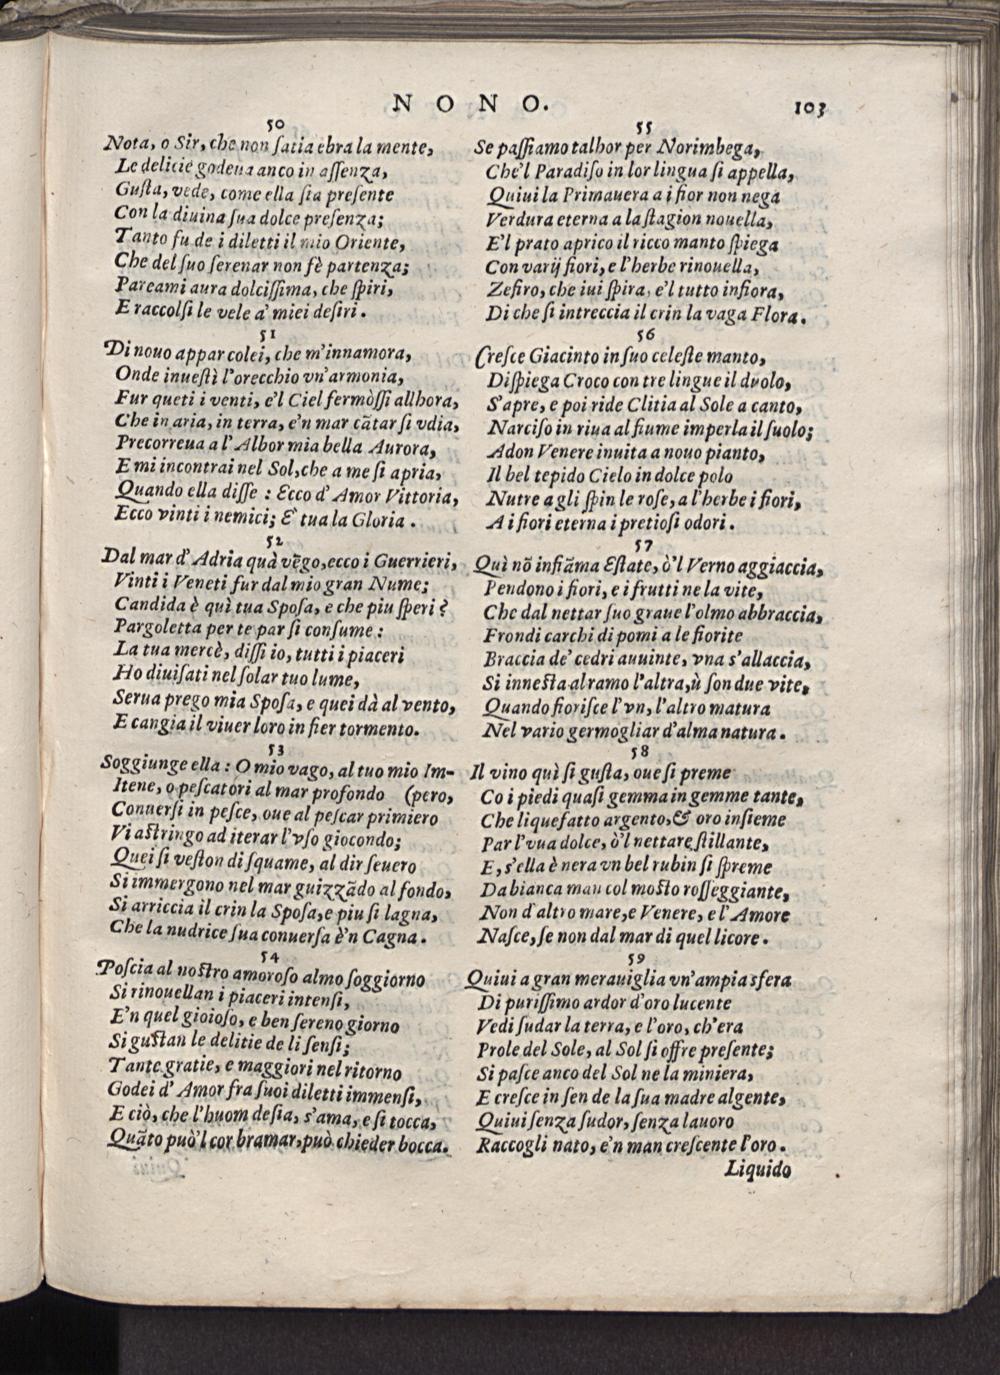 NONO.
103
50
Nota, o Sir, che non ſatia ebra la mente,
Le delicie godeua anco in aſſenza,
Guſta, vede, come ella ſia preſente
Con la diuina ſua dolce preſenza;
Tanto fu de i diletti il mio Oriente,
Che del ſuo ſerenar non fè partenza;
Pareami aura dolciſſima, che ſpiri,
E raccolſi le vele a' miei deſiri.
51
Di nouo appar colei, che m'innamora,
Onde inueſtì l'orecchio vn'armonia,
Fur queti i venti, e'l Ciel fermòſſi allhora,
Che in aria, in terra, e'n mar cãtar ſi vdia,
Precorreua a l'Albor mia bella Aurora,
E mi incontrai nel Sol, che a me ſi apria,
Quando ella diſſe: Ecco d'Amor Vittoria,
Ecco vinti i nemici; E' tua la Gloria.
52
Dal mar d'Adria quà vẽgo, ecco i Guerrieri,
Vinti i Veneti fur dal mio gran Nume;
Candida è quì tua Spoſa, e che piu ſperi?
Pargoletta per te par ſi conſume:
La tua mercè, diſſi io, tutti i piaceri
Ho diuiſati nel ſolar tuo lume,
Serua prego mia Spoſa, e quei dà al vento,
E cangia il viuer loro in fier tormento.
53
Soggiunge ella: O mio vago, al tuo mio Im-
Itene, o peſcatori al mar profondo (pero,
Conuerſi in peſce, oue al peſcar primiero
Vi aſtringo ad iterar l'vſo giocondo;
Quei ſi veſton di ſquame, al dir ſeuero
Si immergono nel mar guizzãdo al fondo,
Si arriccia il crin la Spoſa, e piu ſi lagna,
Che la nudrice ſua conuerſa è'n Cagna.
54
Poſcia al noſtro amoroſo almo ſoggiorno
Si rinouellan i piaceri intenſi,
E'n quel gioioſo, e ben ſereno giorno
Si guſtan le delitie de li ſenſi;
Tante gratie, e maggiori nel ritorno
Godei d'Amor fra ſuoi diletti immenſi,
E ciò, che l'huom deſia, s'ama, e ſi tocca,
Quãto può'l cor bramar, può chieder bocca.
55
Se paſſiamo talhor per Norimbega,
Che'l Paradiſo in lor lingua ſi appella,
Quiui la Primauera a i fior non nega
Verdura eterna a la ſtagion nouella,
E'l prato aprico il ricco manto ſpiega
Con varij fiori, e l'herbe rinouella,
Zefiro, che iui ſpira, e'l tutto infiora,
Di che ſi intreccia il crin la vaga Flora.
56
Creſce Giacinto in ſuo celeſte manto,
Diſpiega Croco con tre lingue il duolo,
S'apre, e poi ride Clitia al Sole a canto,
Narciſo in riua al fiume imperla il ſuolo;
Adon Venere inuita a nouo pianto,
Il bel tepido Cielo in dolce polo
Nutre a gli ſpin le roſe, a l'herbe i fiori,
A i fiori eterna i pretioſi odori.
57
Quì nõ infiãma Eſtate, ò'l Verno aggiaccia,
Pendono i fiori, e i frutti ne la vite,
Che dal nettar ſuo graue l'olmo abbraccia,
Frondi carchi di pomi a le fiorite
Braccia de' cedri auuinte, vna s'allaccia,
Si inneſta al ramo l'altra, ù ſon due vite,
Quando fioriſce l'vn, l'altro matura
Nel vario germogliar d'alma natura.
58
Il vino quì ſi guſta, oue ſi preme
Co i piedi quaſi gemma in gemme tante,
Che liquefatto argento, & oro inſieme
Par l'vua dolce, ò'l nettare ſtillante,
E, s'ella è nera vn bel rubin ſi ſpreme
Da bianca man col moſto roſſeggiante,
Non d'altro mare, e Venere, e l'Amore
Naſce, ſe non dal mar di quel licore.
59
Quiui a gran merauiglia vn'ampia sfera
Di puriſſimo ardor d'oro lucente
Vedi ſudar la terra, e l'oro, ch'era
Prole del Sole, al Sol ſi offre preſente;
Si paſce anco del Sol ne la miniera,
E creſce in ſen de la ſua madre algente,
Quiui ſenza ſudor, ſenza lauoro
Raccogli nato, e'n man creſcente l'oro.
Liquido